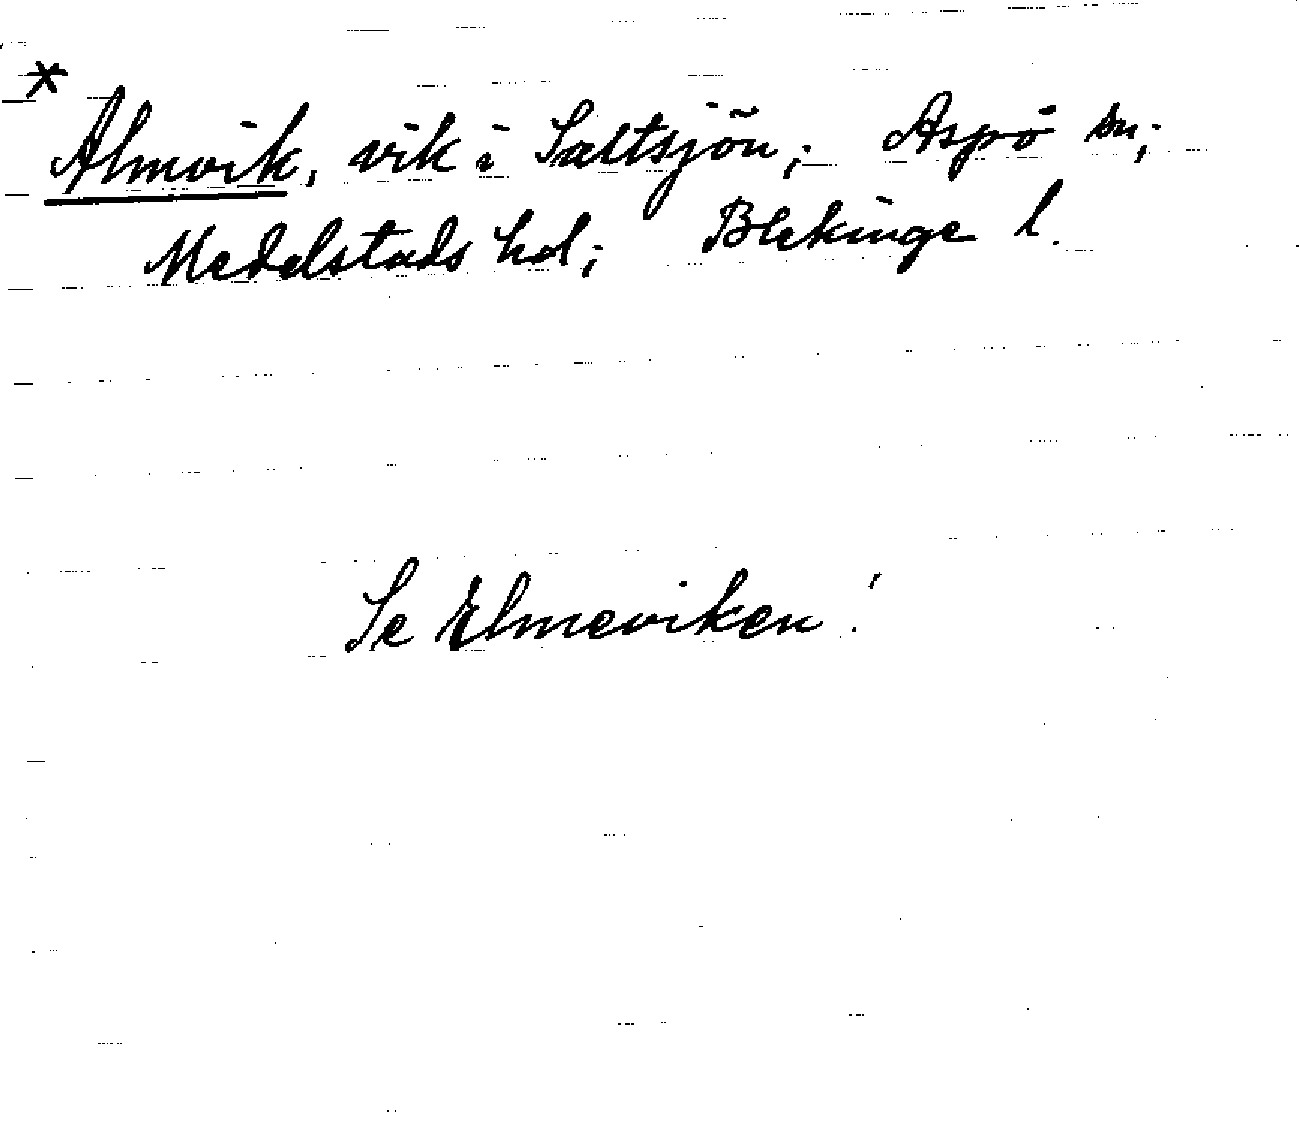 * Almvik, vik i Saltsjön; Aspö sn;
Medelstads hd; Blekinge l.
Se Elmeviken!